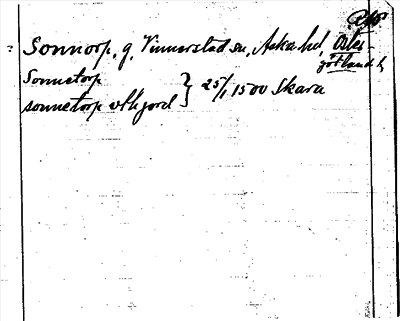 Sonnorp, g, Vinnerstad sn, Aska hd, Öster-
götlands l,
Sonnetorp
sonnetorp utkjord } 25/1 1500 Skara